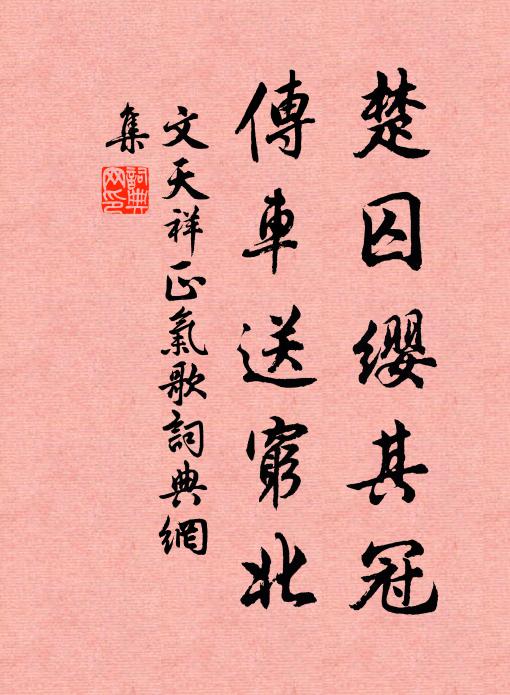 楚囚纓其冠
傳車送窮北
文天祥正氣歌詞典網
集
詞典
网印